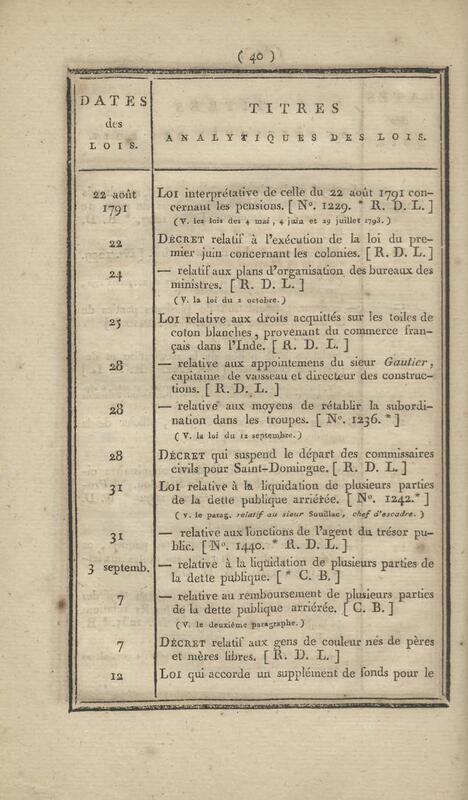 ( 40 )
DATES
des
LOIS.
TITRES
ANALYTIQUES DES LOIS.
22 août
1791
LOI interprétative de celle du 22 août 1791 con-
cernant les pensions. [ N°. 1229. * R. D. L. ]
( V. les lois des 4 mai, 4 juin et 29 juillet 1793. )
22 DÉCRET relatif à l'exécution de la loi du pre-
mier juin concernant les colonies. [ R. D. L. ]
24 — relatif aux plans d'organisation des bureaux des
ministres. [ R. D. L. ]
( V. la loi du 2 octobre. )
25 LOI relative aux droits acquittés sur les toiles de
coton blanches, provenant du commerce fran-
çais dans l'Inde. [ R. D. L. ]
28 — relative aux appointemens du sieur Gautier,
capitaine de vaisseau et directeur des construc-
tions. [ R. D. L. ]
28 — relative aux moyens de rétablir la subordi-
nation dans les troupes. [ N°. 1236. * ]
( V. la loi du 12 septembre. )
28 DÉCRET qui suspend le départ des commissaires
civils pour Saint-Domingue. [ R. D. L. ]
31 LOI relative à la liquidation de plusieurs parties
de la dette publique arriérée. [ N°. 1242. * ]
( V. le parag. relatif au sieur Souillac, chef d'escadre. )
31 — relative aux fonctions de l'agent du trésor pu-
blic. [ N°. 1440. * R. D. L. ]
3 septemb. — relative à la liquidation de plusieurs parties de
la dette publique. [ * C. B. ]
7 — relative au remboursement de plusieurs parties
de la dette publique arriérée. [ C. B. ]
( V. le deuxième paragraphe. )
7 DÉCRET relatif aux gens de couleur nés de pères
et mères libres. [ R. D. L. ]
12 LOI qui accorde un supplément de fonds pour le